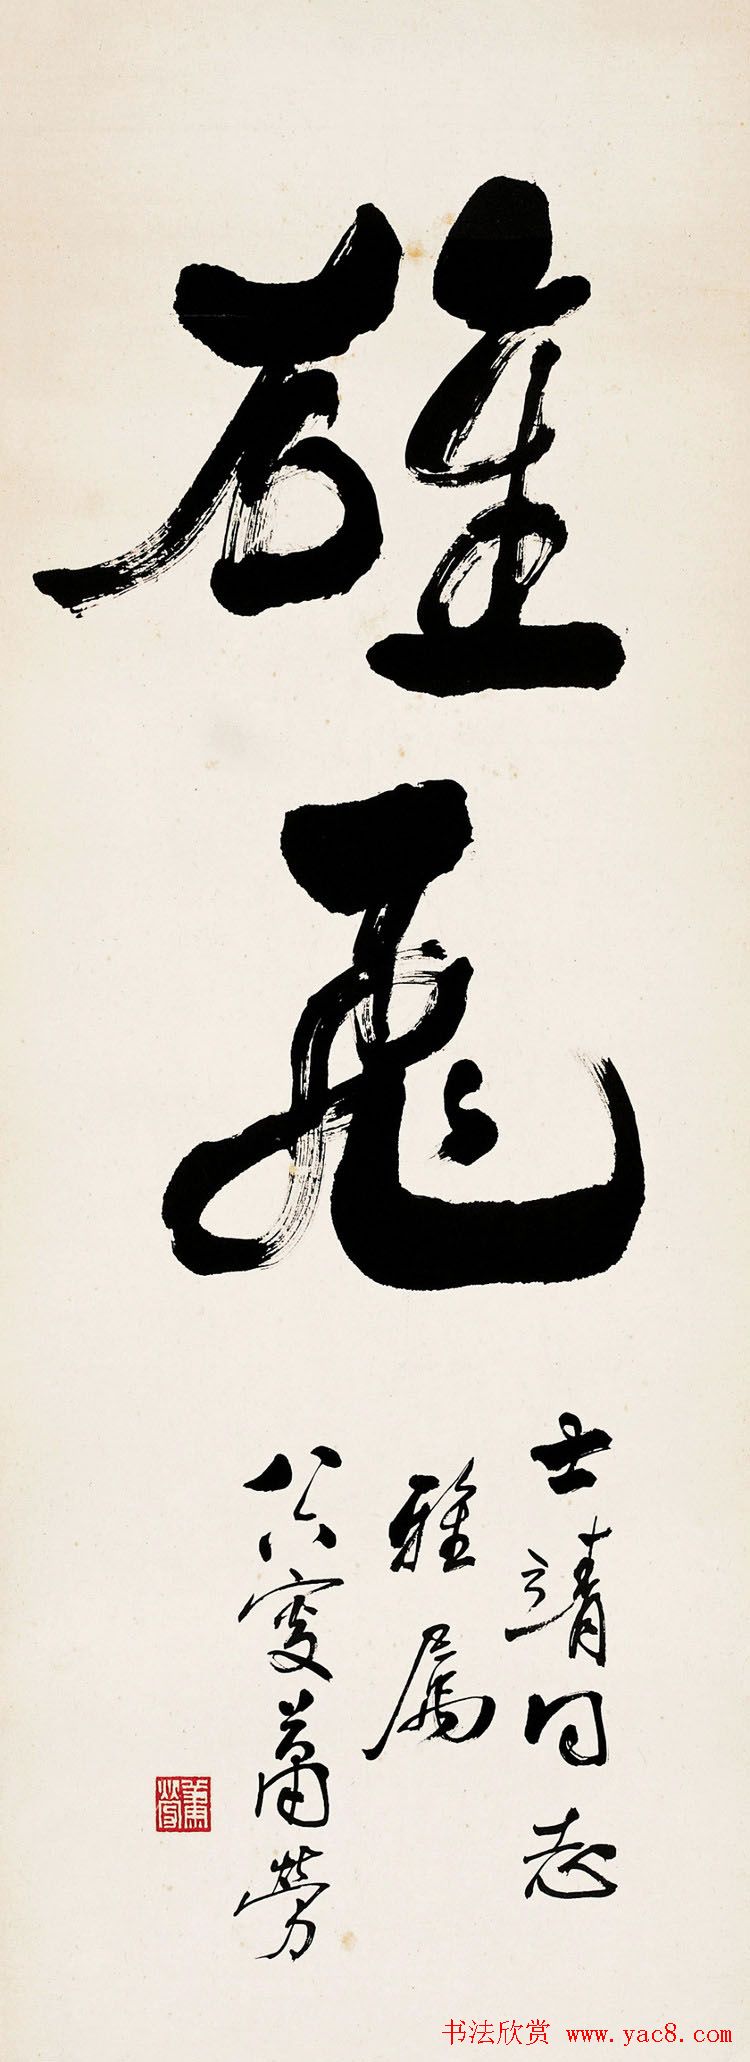 雄飛
士靖同志
雅属
八六叟萧劳
萧劳
书法欣赏 www.yac8.com